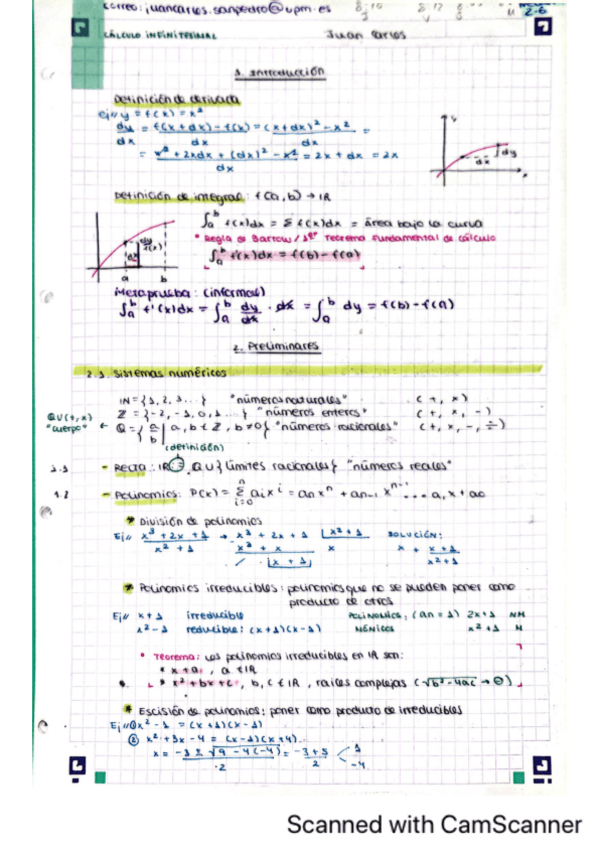 correo: juancarlos.sanpedro@upm.es
2-6
CÁLCULO INFINITESIMAL Juan Carlos
1. Introducción
Definición de derivada
Ej// y = f(x) = x²
dy/dx = f(x+dx) - f(x) / dx = (x+dx)² - x² / dx =
= x² + 2xdx + (dx)² - x² / dx = 2x + dx = 2x
Definición de integral: f(a,b) → IR
∫ₐᵇ f(x)dx = Σ f(x)dx = área bajo la curva
* Regla de Barrow / 1er Teorema Fundamental de cálculo
∫ₐᵇ f'(x)dx = f(b) - f(a)
Metaprueba: (informal)
∫ₐᵇ f'(x)dx = ∫ₐᵇ dy/dx · dx = ∫ₐᵇ dy = f(b) - f(a)
2. Preliminares
2.1. Sistemas numéricos
IN = {1, 2, 3...} "números naturales" (+, x)
Z = {-2, -1, 0, 1...} "números enteros" (+, x, -)
"cuerpo" ← Q = {a/b | a, b ∈ Z, b ≠ 0} "números racionales" (+, x, -, ÷)
(definición)
- Recta: IR := Q U {límites racionales} "números reales"
1.2 - Polinomios: P(x) = Σ aᵢxⁱ = aₙxⁿ + aₙ₋₁xⁿ⁻¹ ... a₁x + a₀
* División de polinomios
Ej// x³ + 2x + 1 / x² + 1 → x³ + 2x + 1 | x² + 1 SOLUCIÓN:
x³ + x x x + x + 1 / x² + 1
x + 1
* Polinomios irreducibles: polinomios que no se pueden poner como
producto de otros
Ej// x + 1 irreducible POLINOMIOS: (an = 1) 2x+1 NM
x² - 1 reducible: (x+1)(x-1) MÓNICOS x² + 1 M
* Teorema: Los polinomios irreducibles en IR son:
* x + a, a ∈ IR
* x² + bx + c, b, c ∈ IR, raíces complejas (√b² - 4ac → ⊖)
* Escisión de polinomios: poner como producto de irreducibles
Ej// ① x² - 1 = (x+1)(x-1)
② x² + 3x - 4 = (x-1)(x+4)
x = -3 ± √9 - 4(-4) / 2 = -3 ± 5 / 2 < 1
-4
Scanned with CamScanner